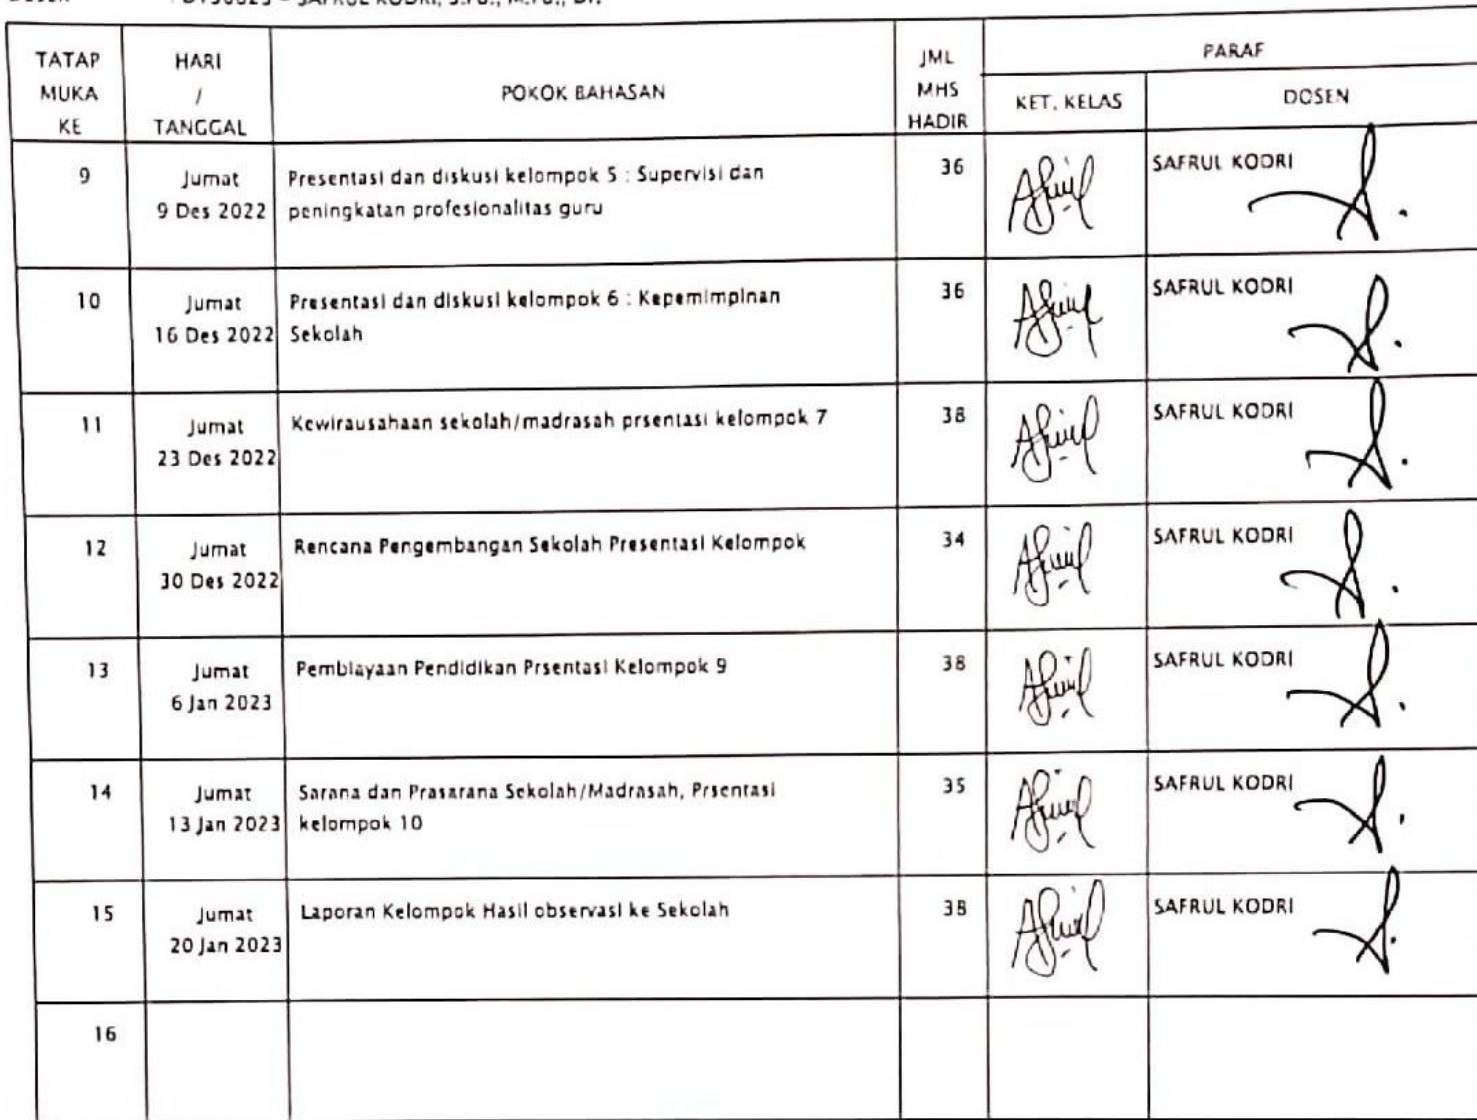 SAFRUL KODRI, S.Pd., M.Pd., Dr.
TATAP
MUKA
KE
HARI
/
TANGGAL
POKOK BAHASAN
JML
MHS
HADIR
PARAF
KET. KELAS
DOSEN
9
Jumat
9 Des 2022
Presentasi dan diskusi kelompok 5 : Supervisi dan
peningkatan profesionalitas guru
36
SAFRUL KODRI
10
Jumat
16 Des 2022
Presentasi dan diskusi kelompok 6 : Kepemimpinan
Sekolah
36
SAFRUL KODRI
11
Jumat
23 Des 2022
Kewirausahaan sekolah/madrasah prsentasi kelompok 7
38
SAFRUL KODRI
12
Jumat
30 Des 2022
Rencana Pengembangan Sekolah Presentasi Kelompok
34
SAFRUL KODRI
13
Jumat
6 Jan 2023
Pembiayaan Pendidikan Prsentasi Kelompok 9
38
SAFRUL KODRI
14
Jumat
13 Jan 2023
Sarana dan Prasarana Sekolah/Madrasah, Prsentasi
kelompok 10
35
SAFRUL KODRI
15
Jumat
20 Jan 2023
Laporan Kelompok Hasil observasi ke Sekolah
38
SAFRUL KODRI
16